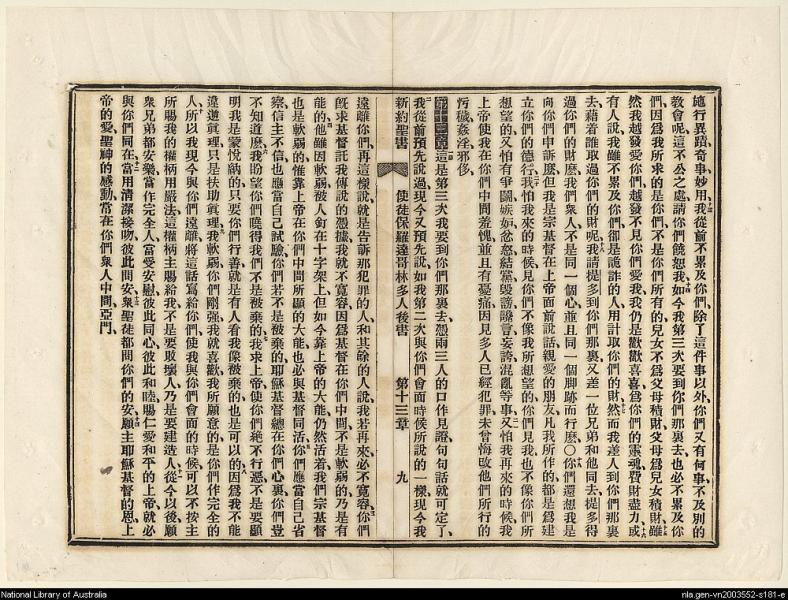 施行異蹟奇事妙用我從前不累及你們除了這件事以外你們又有何事不及別的
教會呢這不公之處請你們饒恕我如今我第三次要到你們那裏去也必不累及你
們因爲我所求的是你們不是你們所有的兒女不爲父母積財父母爲兒女積財雖
然我越發愛你們越發不見你們愛我我仍是歡歡喜喜爲你們的靈魂費財盡力或
有人說我雖不累及你們卻是詭詐的人用計取你們的財然而我差人到你們那裏
去藉着誰取過你們的財呢我請提多到你們那裏又差一位兄弟和他同去提多得
過你們的財麽我們衆人不是同一個心並且同一個脚跡而行麽○你們還想我是
向你們申訴麽但我是宗基督在上帝面前說話親愛的朋友凡我所作的都是爲建
立你們的德行我怕我來的時候見你們不像我所想望的你們見我也不像你們所
想望的又怕有爭鬬嫉妬忿怒結黨毀謗讒言妄誇混亂等事又怕我再來的時候我
上帝使我在你們中間羞愧並且有憂痛因見多人已經犯罪未曾悔改他們所行的
污穢姦淫邪侈
第十三章這是第三次我要到你們那裏去憑兩三人的口作見證句句話就可定了
我從前預先說過現今又預先說如我第二次與你們會面時候所說的一樣現今我
新約聖書 使徒保羅達哥林多人後書 第十三章 九
遠離你們再這樣說就是告訴那犯罪的人和其餘的人說我若再來必不寬容你們
旣求基督託我傳說的憑據我就不寬容因爲基督在你們中間不是軟弱的乃是有
能的他雖因軟弱被人釘在十字架上但如今靠上帝的大能仍然活着我們宗基督
也是軟弱的惟靠上帝在你們中間所顯的大能也必與基督同活你們應當自己省
察信主不信也應當自己試驗你們若不是被棄的耶穌基督總在你們心裏你們豈
不知道麽我盼望你們曉得我們不是被棄的我求上帝使你們絶不行惡不是要顯
明我是蒙悅納的只要你們行善就是有人看我像被棄的也是可以的因爲我不能
違逆眞理只是扶助眞理我軟弱你們剛强我就喜歡我所願意的是你們作完全的
人所以我現今與你們遠離將這話寫給你們使我與你們會面的時候可以不按主
所賜我的權柄用嚴法這權柄主賜給我不是要敗壞人乃是要建造人從今以後願
衆兄弟都安樂當作完全人當受安慰彼此同心彼此和睦賜仁愛和平的上帝就必
與你們同在當用清潔接吻彼此問安衆聖徒都問你們的安願主耶穌基督的恩上
帝的愛聖神的感動常在你們衆人中間亞門
National Library of Australia
nla.gen-vn2003552-s181-e